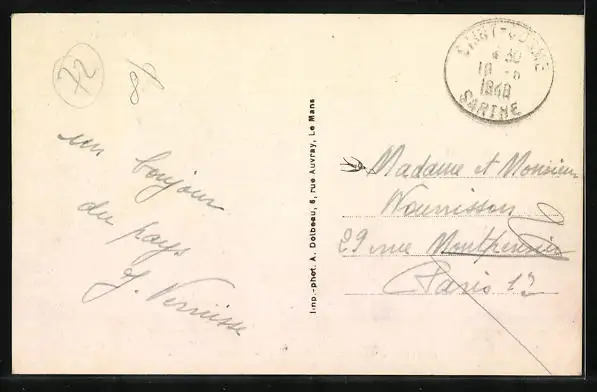 72
8
un bonjour
du pays
Imp.-phot. A. Dolbeau, 6, rue Auvray, Le Mans
4 30
1948
SARTHE
Madame et Monsieur
Nourrisson
29 rue Montpensier
Paris 1